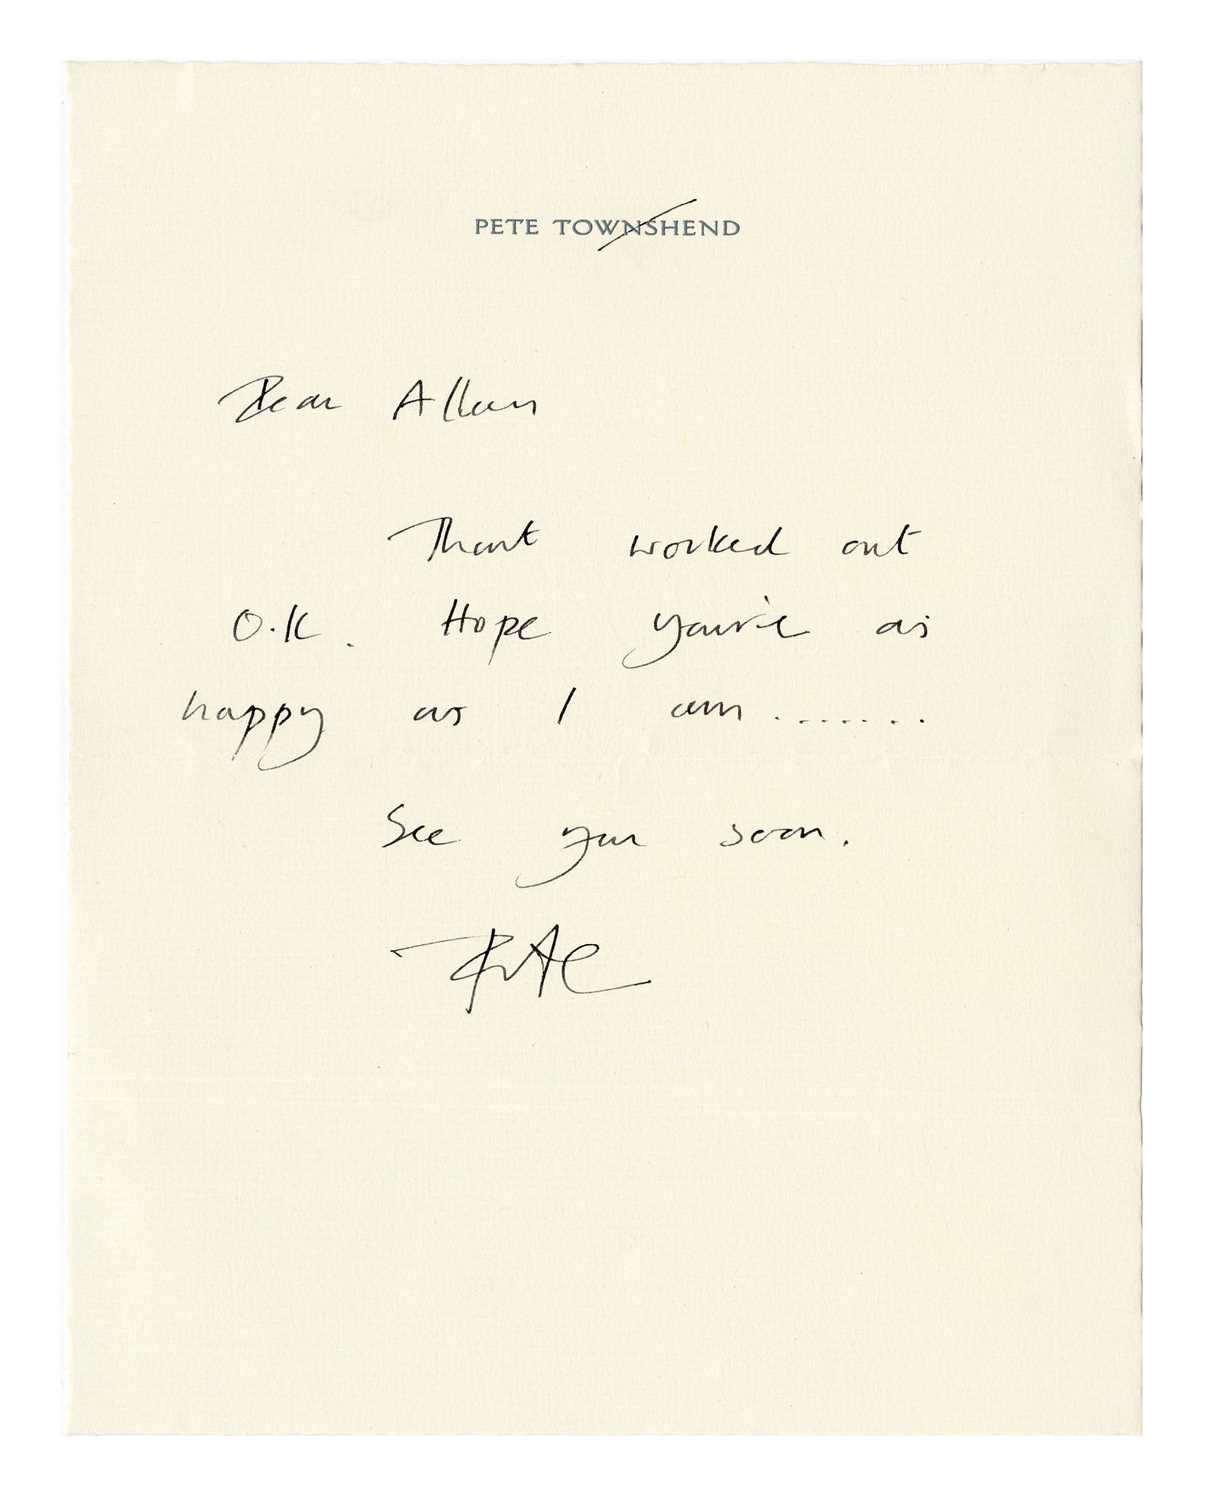 PETE TOWNSHEND
Dear Allan
That worked out
O.K. Hope you're as
happy as I am.......
See you soon.
Pete